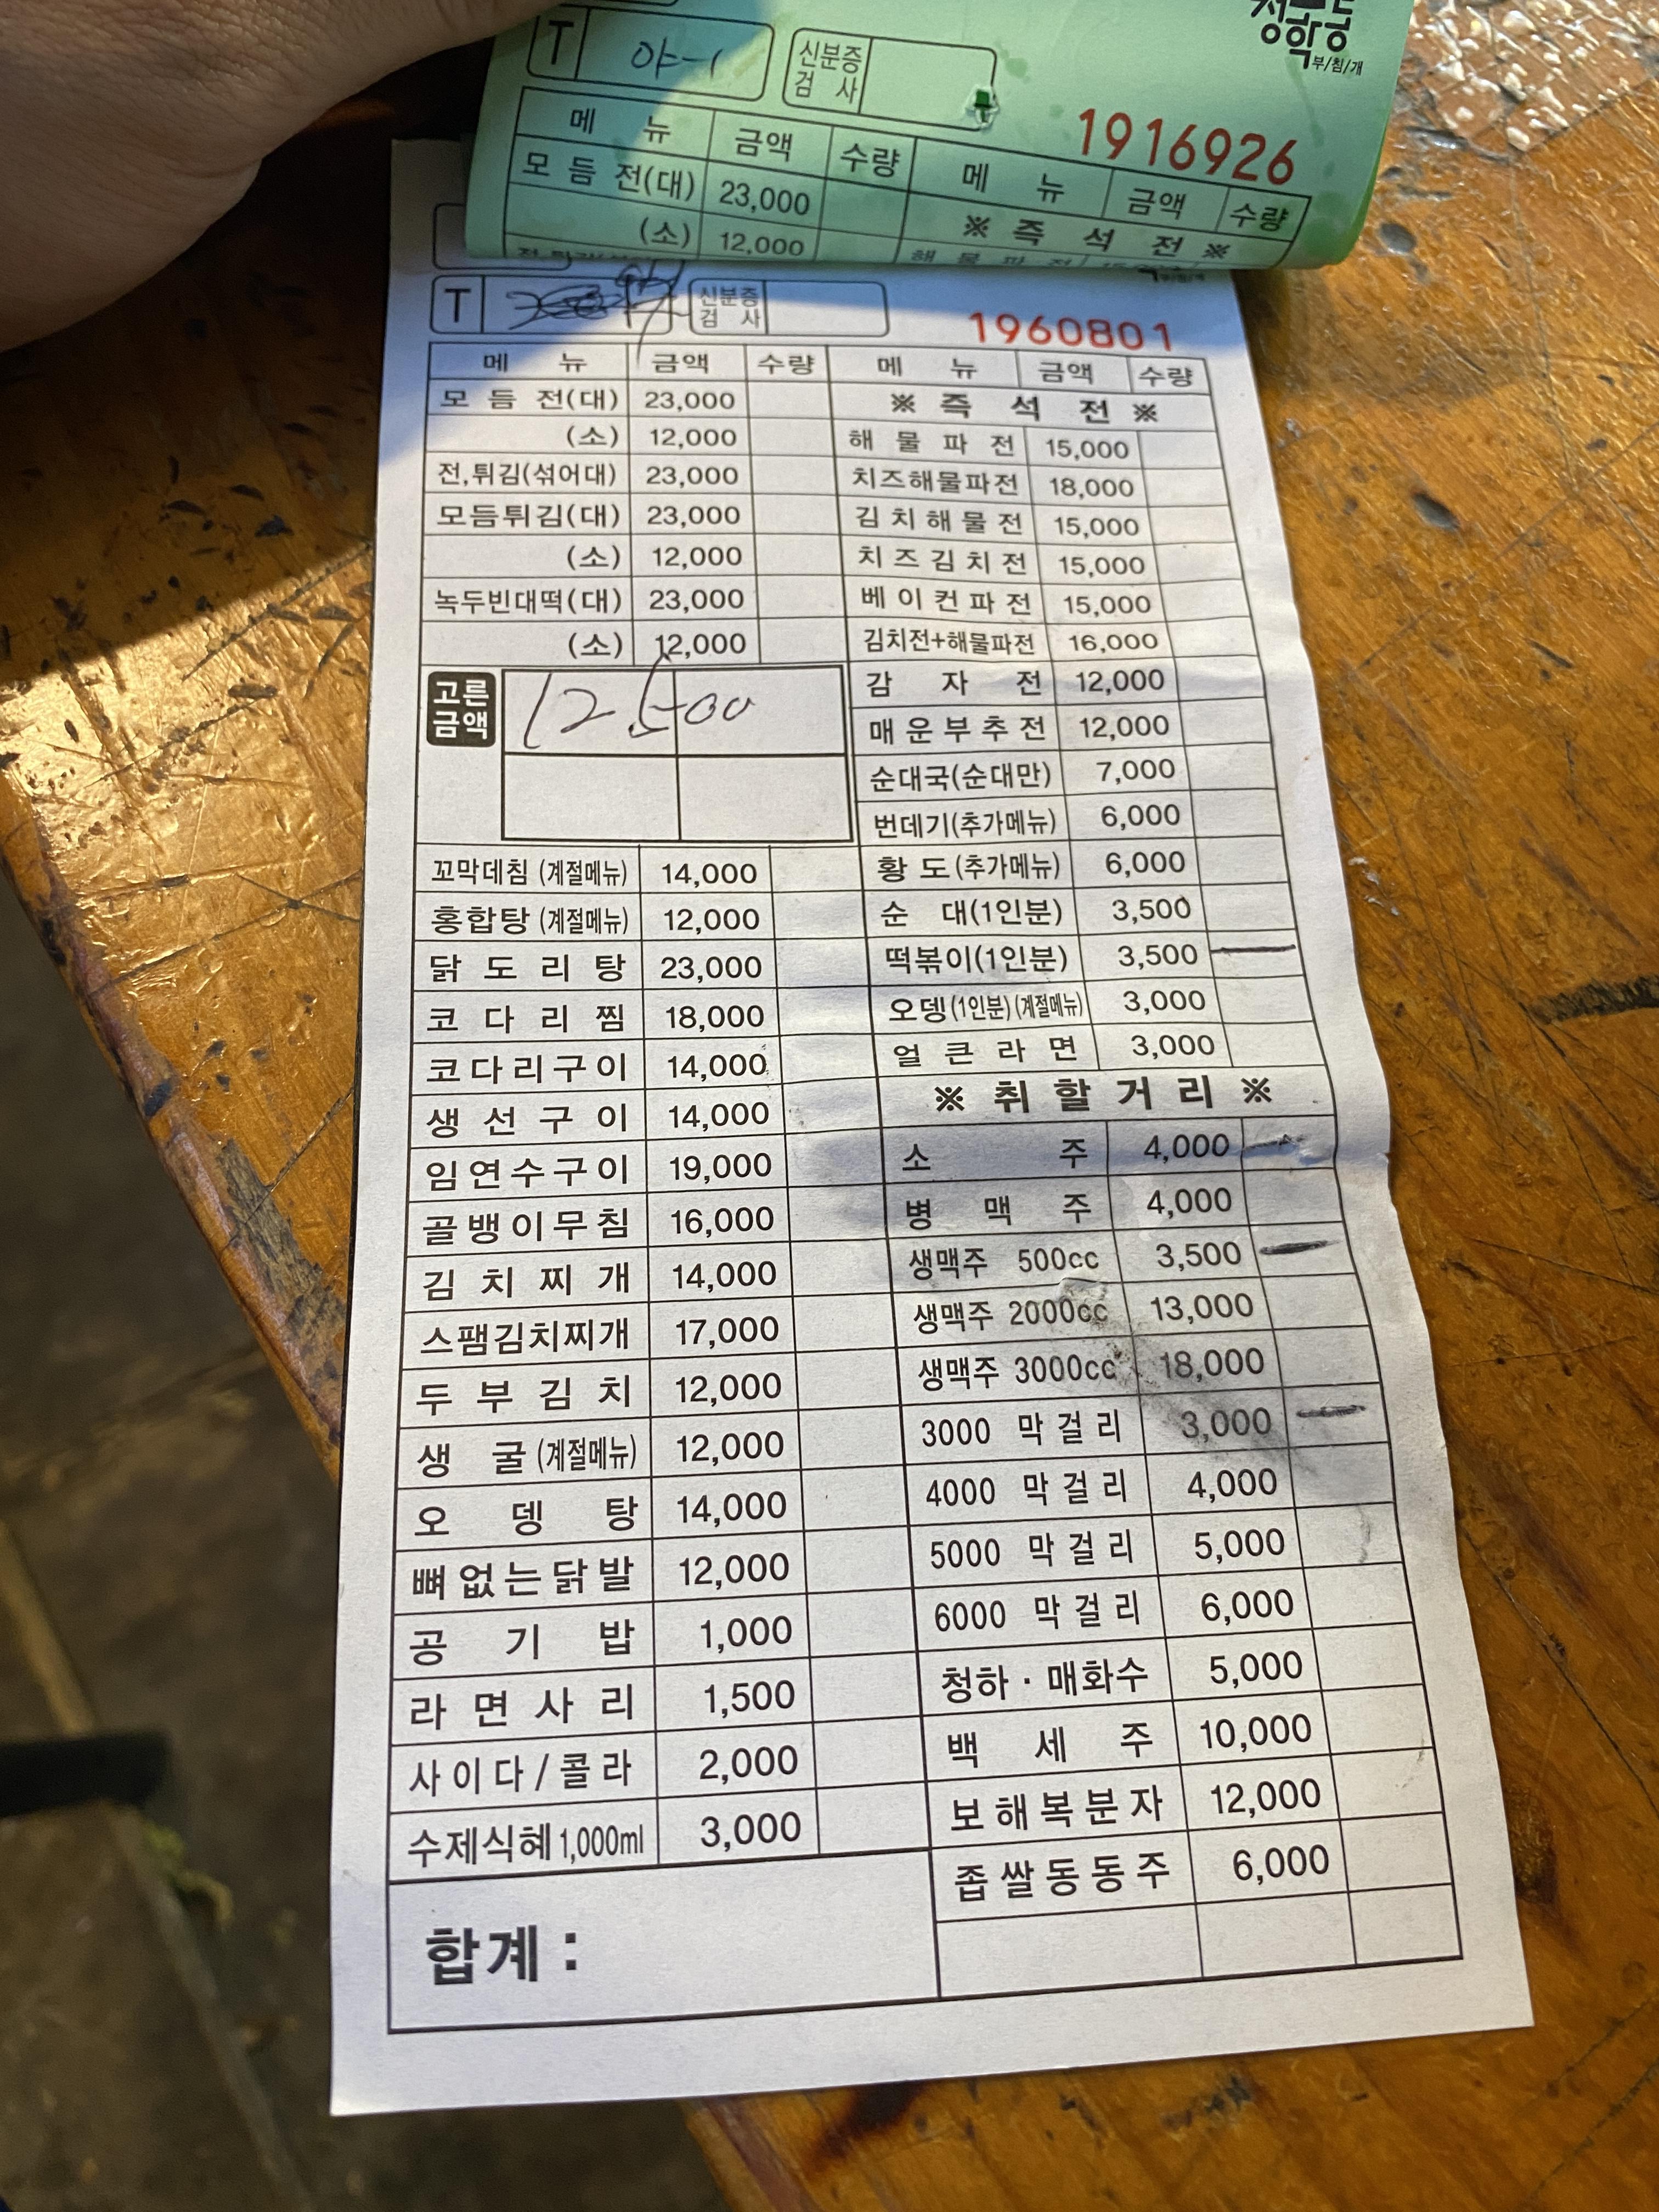 청학동
부/침/개
T 야-1 신분증 검 사
1916926
메 뉴 금액 수량 메 뉴 금액 수량
모 듬 전(대) 23,000 ※ 즉 석 전 ※
(소) 12,000 해 물 파 전
T 신분증 검 사
1960801
메 뉴 금액 수량 메 뉴 금액 수량
모 듬 전(대) 23,000 ※ 즉 석 전 ※
(소) 12,000 해 물 파 전 15,000
전,튀김(섞어대) 23,000 치즈해물파전 18,000
모듬튀김(대) 23,000 김 치 해 물 전 15,000
(소) 12,000 치 즈 김 치 전 15,000
녹두빈대떡(대) 23,000 베 이 컨 파 전 15,000
(소) 12,000 김치전+해물파전 16,000
고른 금액 12,500 감 자 전 12,000
매 운 부 추 전 12,000
순대국(순대만) 7,000
번데기(추가메뉴) 6,000
꼬막데침 (계절메뉴) 14,000 황 도(추가메뉴) 6,000
홍합탕 (계절메뉴) 12,000 순 대(1인분) 3,500
닭 도 리 탕 23,000 떡볶이(1인분) 3,500
코 다 리 찜 18,000 오뎅(1인분)(계절메뉴) 3,000
코다리구이 14,000 얼 큰 라 면 3,000
생 선 구 이 14,000 ※ 취 할 거 리 ※
임연수구이 19,000 소 주 4,000
골뱅이무침 16,000 병 맥 주 4,000
김 치 찌 개 14,000 생맥주 500cc 3,500
스팸김치찌개 17,000 생맥주 2000cc 13,000
두 부 김 치 12,000 생맥주 3000cc 18,000
생 굴 (계절메뉴) 12,000 3000 막 걸 리 3,000
오 뎅 탕 14,000 4000 막 걸 리 4,000
뼈없는닭발 12,000 5000 막 걸 리 5,000
공 기 밥 1,000 6000 막 걸 리 6,000
라 면 사 리 1,500 청하 · 매화수 5,000
사이다/콜라 2,000 백 세 주 10,000
수제식혜 1,000ml 3,000 보 해 복 분 자 12,000
합계 : 좁 쌀 동 동 주 6,000